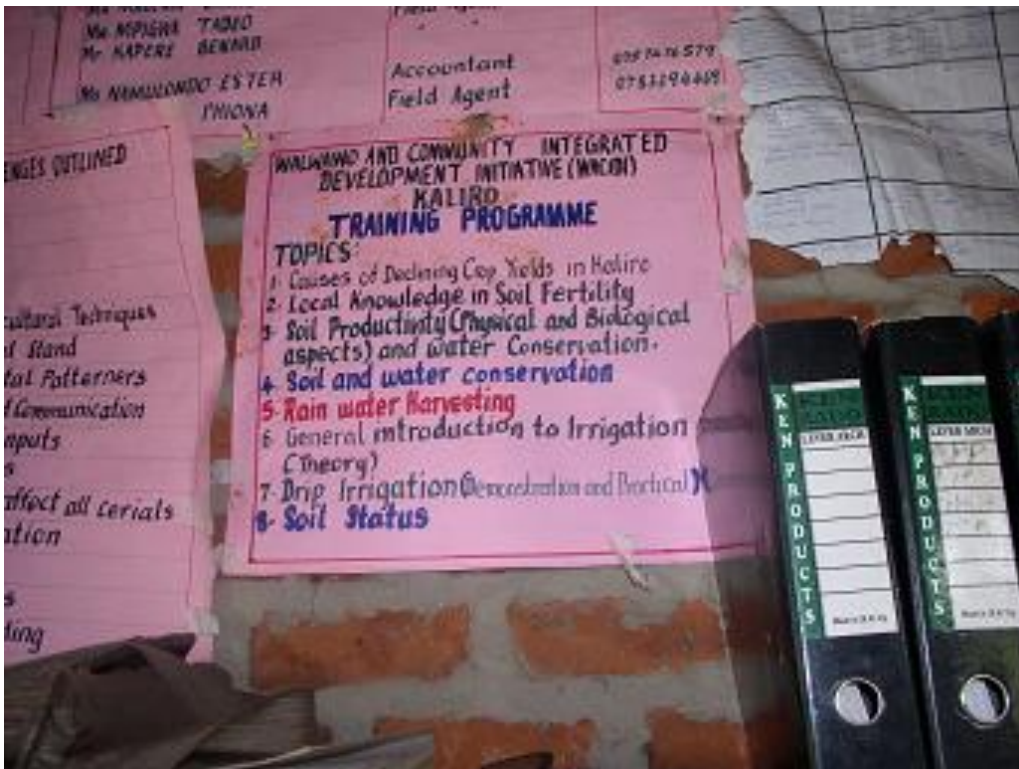 Ms MPIGWA TABEO
Mr KAPERE BENARD
Ms NAMULONDO ESTER
PHIONA
Field Agent
Accountant
Field Agent
0783696469
ENGES OUTLINED
cultural Techniques
d Stand
tal Patterners
d Communication
nputs
s
affect all cerials
ation
s
ding
WALWAWO AND COMMUNITY INTEGRATED
DEVELOPMENT INITIATIVE (WACIDI)
KALIRO
TRAINING PROGRAMME
TOPICS:
1. Causes of Declining Cop Yields in Kaliro
2. Local Knowledge in Soil Fertility
3. Soil Productivity (Physical and Biological
aspects) and water Conservation.
4. Soil and water conservation
5. Rain water Harvesting
6. General introduction to Irrigation
(Theory)
7. Drip Irrigation (Demonstration and Practical)
8. Soil Status
KEN PRODUCTS
KEN
LEVER ARCH
KEN PRODUCTS
LEVER ARCH